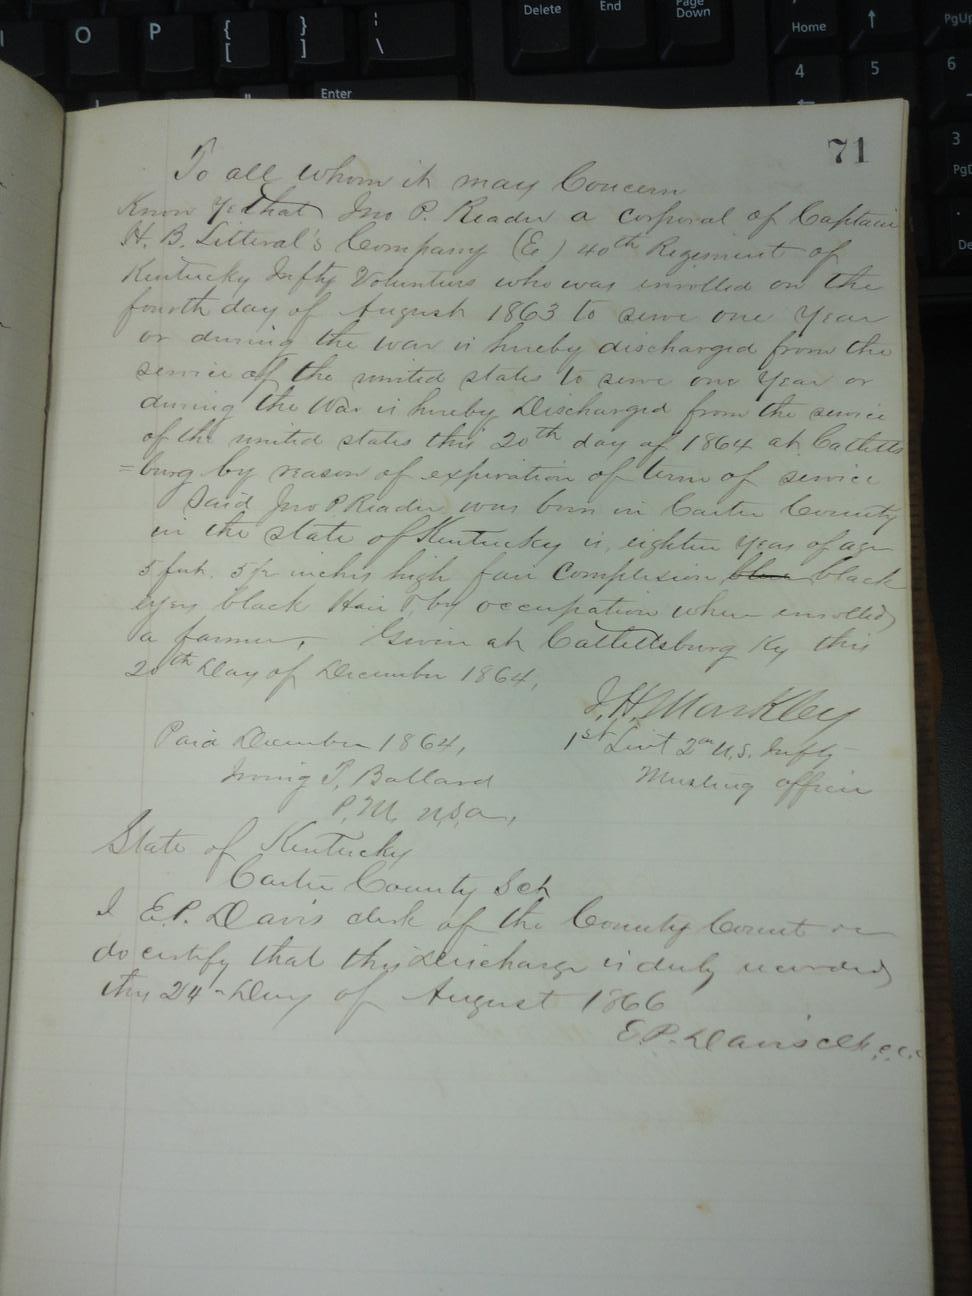 Delete End Page Down Home ↑ PgUp
O P { [ } ] ¦ \ 4 5 6
Enter
3 PgD
71
To all whom it may Concern
Know Ye that Jno P. Reader a corporal of Captain
H. B. Litteral's Company (E) 40th Regiment of
Kentucky Infty Volunteers who was enrolled on the
fourth day of August 1863 to serve one Year
or during the war is hereby discharged from the
service of the united states to serve one Year or
during the War is hereby Discharged from the service
of the united states this 20th day of 1864 at Catletts
=burg by reason of expiration of term of service
Said Jno P Reader was born in Carter County
in the state of Kentucky is eighteen Years of age
5 feet. 5½ inches high fair Complexion blue black
eyes black Hair & by occupation when enrolled
a farmer. Given at Cattettsburg Ky this
20th Day of December 1864,
J. H. Markley
Paid December 1864, 1st Leut 2nd U.S. Infty
Irving T, Ballard Musting officer
P. M. U,S,a,
State of Kentucky
Carter County Sct
I E.P. Davis clerk of the County Court
do certify that this Discharge is duly recorded
this 24 Day of August 1866
E. P. Davis clk. c.c.c.